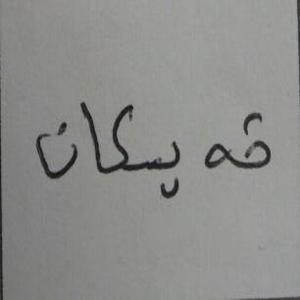 قەیسکان